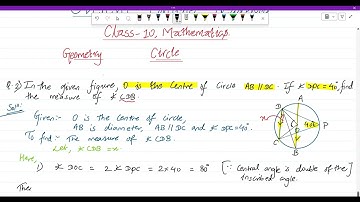 Class-10, Mathematics
Geometry Circle
Q.2) In the given figure, O is the Centre of Circle AB // DC. If ∠DPC=40°, find
the measure of ∠CDB
Soln:
Given:- O is the centre of circle,
AB is diameter, AB//DC and ∠DPC=40°.
To find:- The measure of ∠CDB.
Let, ∠CDB = x
Here,
1) ∠DOC = 2∠DPC = 2×40 = 80° [∵ Central angle is double of the
inscribed angle.]
Ther
A
D
O
40
P
C
B
x